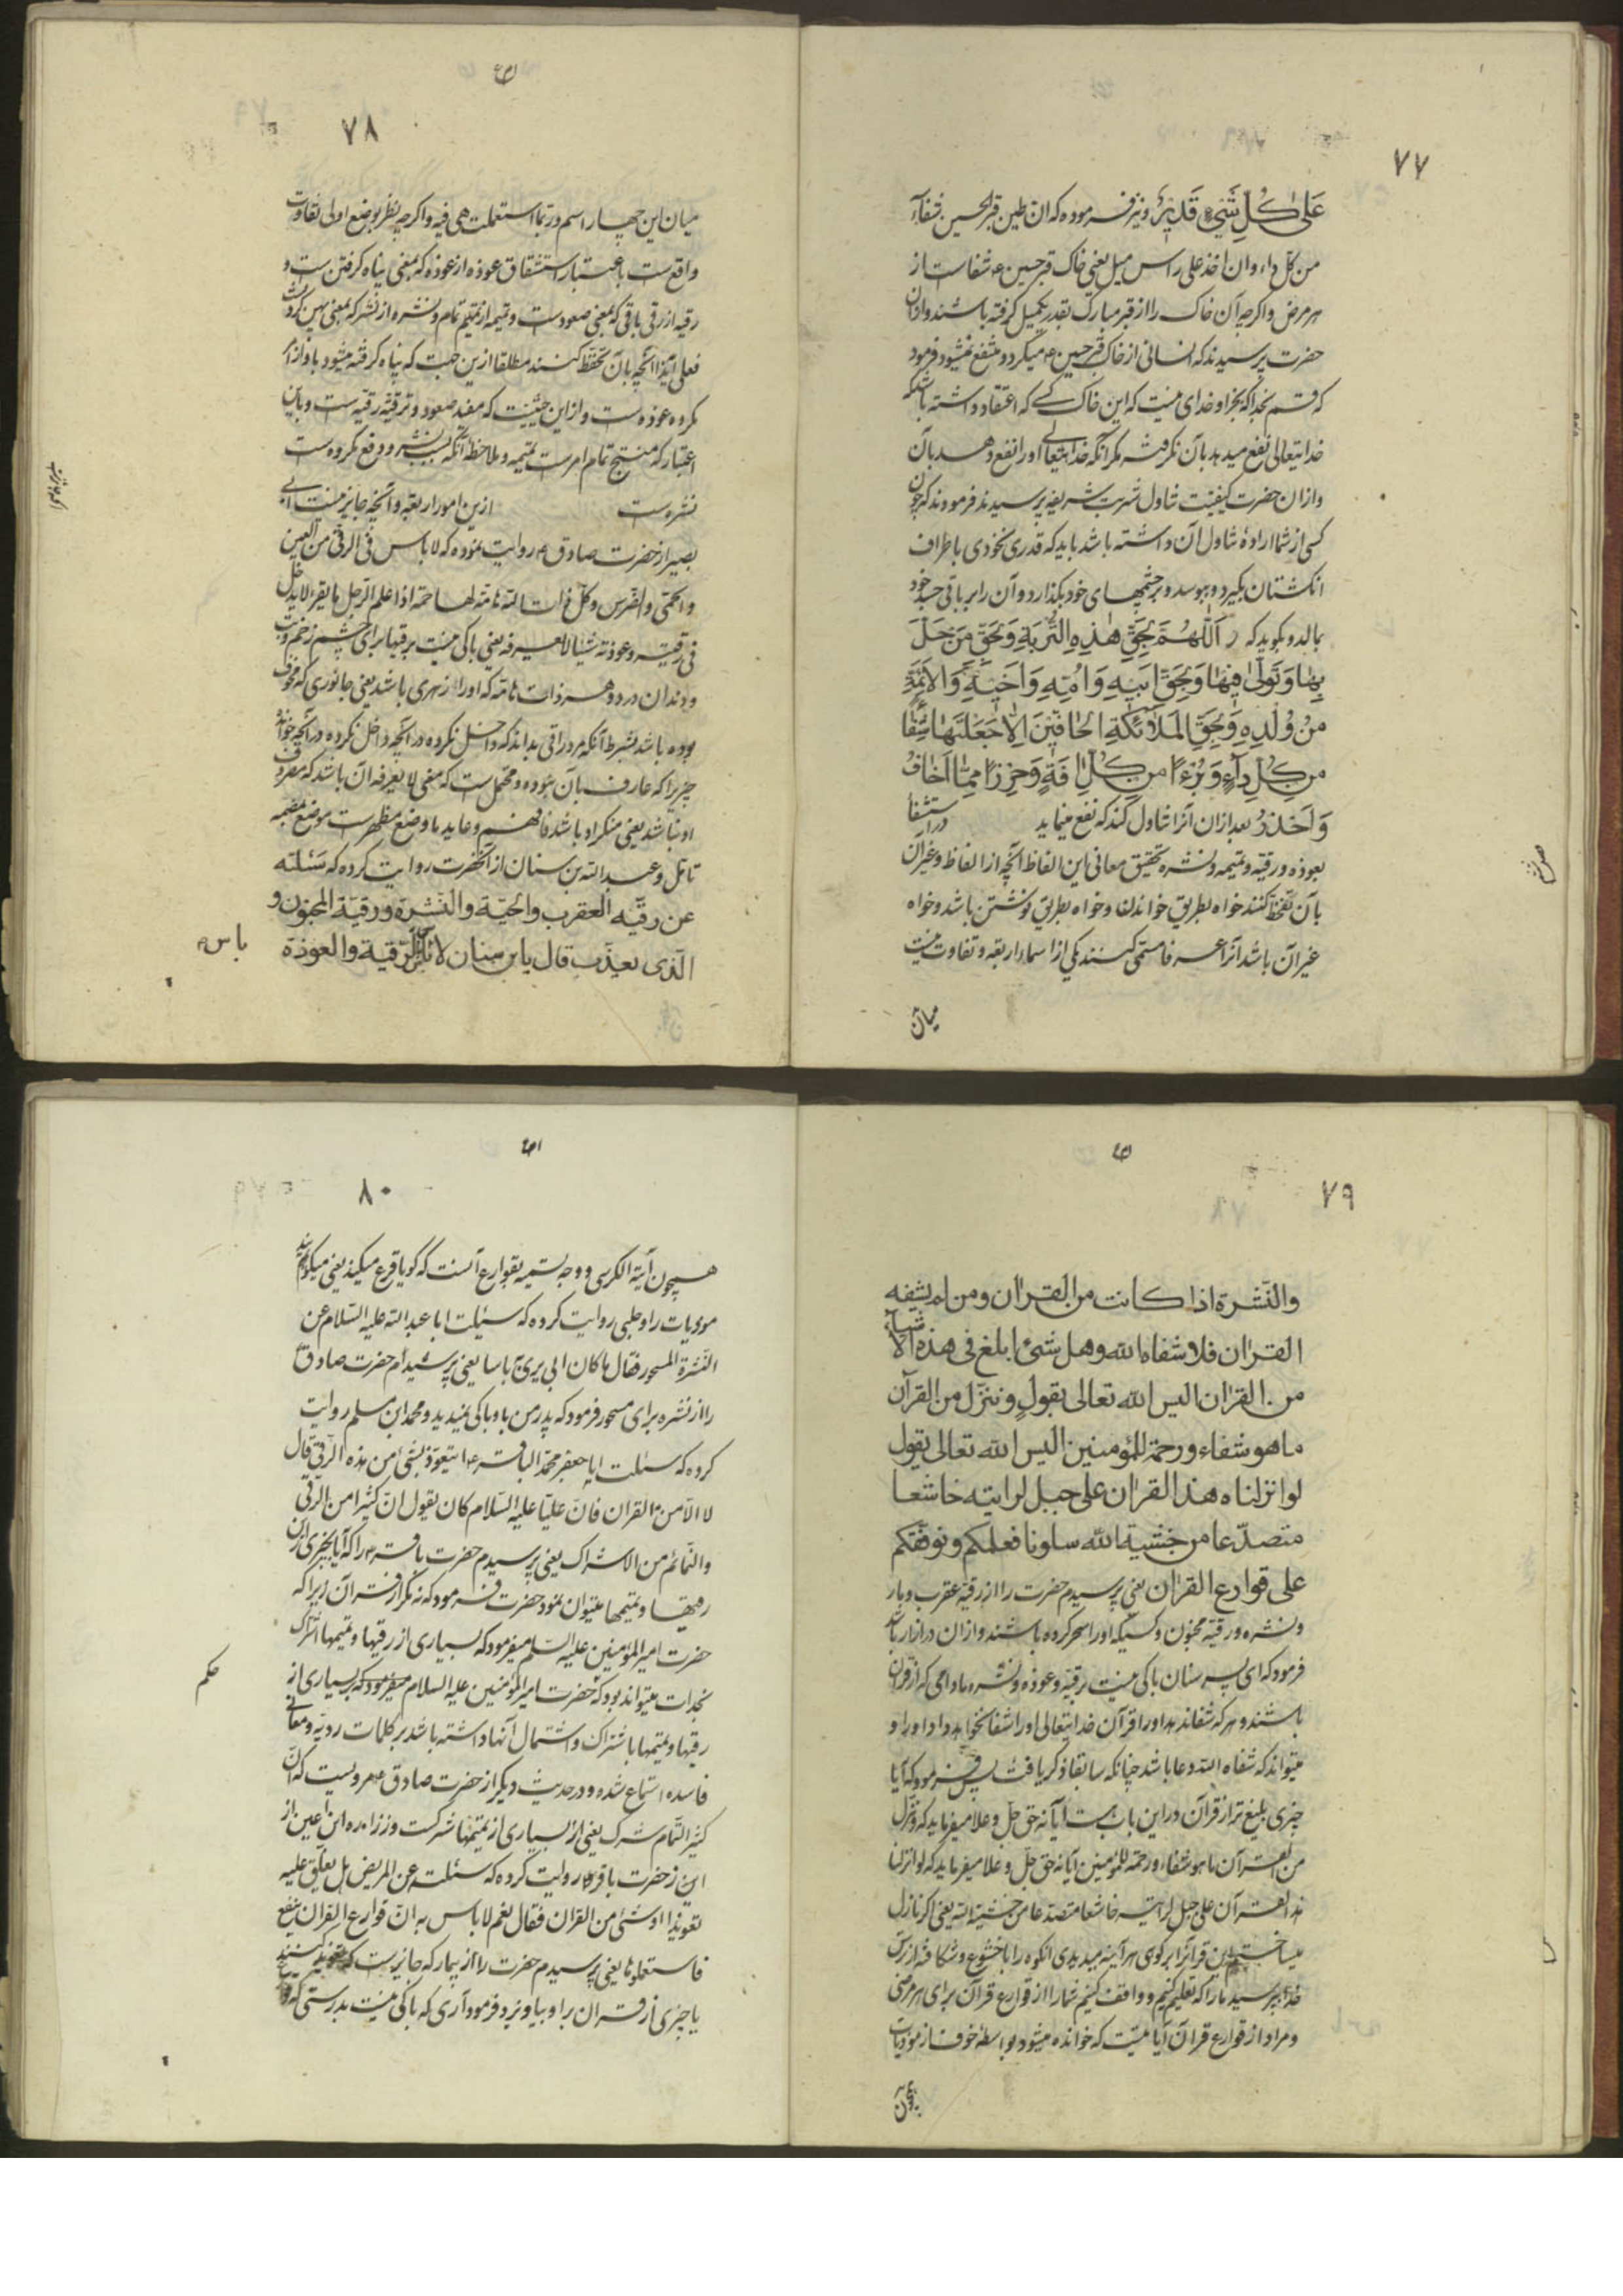 ٧٧
عَلىٰ كُلِّ شَيْءٍ قَديرٌ ونیز فرموده که ان طین قبر الحسین شفاء
من کل داء وان اخذ علی راس میل یعنی خاک قبر حسین ع شفاست از
هر مرض واکرچه آن خاک را از قبر مبارک بقدر یکمیل کرفته باشند وازان
حضرت پرسیدند که انسانی از خاک قبر حسین ع میکرد و منتفع نمیشود فرمود
که قسم بخدا که بجز او خدای نیست که این خاک کسی که اعتقاد داشته باشد که
خدایتعالی نفع میدهد بآن نکرفته مکر آنکه خدایتعالی او را نفع دهد بآن
وازان حضرت کیفیت تناول تربت شریفه پرسیدند فرمودند که چون
کسی از شما ارادهٔ تناول آن داشته باشد باید که قدری نخودی باطراف
انکشتان بکیرد و ببوسد و بر چشمهای خود بکذارد و آن را بر باقی جسد خود
بمالد و بکوید که اَللّٰهُمَّ بِحَقِّ هٰذِهِ التُّرْبَةِ وَبِحَقِّ مَنْ حَلَّ
بِهٰا وَثَوىٰ فِيهٰا وَبِحَقِّ اَبيهِ وَاُمِّهِ وَاَخيهِ وَالاَئِمَّةِ
مِنْ وُلْدِهِ وَبِحَقِّ الْمَلاٰئِكَةِ الحٰافّينَ اِلاّٰ جَعَلْتَهٰا شِفٰاءً
مِن كُلِّ دٰآءٍ وَبُرْءًا مِن كُلِّ اٰفَةٍ وَحِرْزًا مِمّٰا اَخٰافُ
وَاَحْذَرُ بعد ازان آنرا تناول کند که نفع مینماید در استشفا
بعوذه ورقیه وتمیمه ونشره تحقیق معانی این الفاظ آنچه از الفاظ وغیر آن
بآن تحفظ کنند خواه بطریق خواندن وخواه بطریق نوشتن باشد وخواه
غیر آن باشد آنرا عرفا مسمی کنند بیکی از اسماء اربعه وتفاوت نیست
میان
٧٨
میان این چهار اسم وربما استعملت هی فیه واکرچه بنظر بوضع اولی تفاوت
واقعست باعتبار اشتقاق عوذه از عوذه که بمعنی پناه کرفتن است و
رقیه از رقی یاقی که بمعنی صعودست وتمیمه از تتمیم تمام ونشره از نشر که بمعنی پهن کردنست
فعلی هذا آنچه بآن تحفظ کنند مطلقا ازین حیث که پناه کرفته میشود باو از
مکروه عوذه است واز این حیثیت که مفید صعود وترقیه رقیه است وباین
اعتبار که منتج تمام امرست تمیمه وملاحظه آنکه سبب نشر ودفع مکروه است
نشره است ازین امور اربعه وآنچه جایز نیست ابی
بصیر از حضرت صادق ع روایت نموده که لا باس فی الرقی من العین
والحمی والضرس وکل ذات هامة لها حمة اذا علم الرجل ما یقر لا یدخل
فی رقیته وعوذته شیئا لا یعرفه یعنی باکی نیست برقیها برای چشم زخم وتب
ودندان درد وهر ذات هامة که او را زهری باشد یعنی جانوری که مخوف
بوده باشد بشرط آنکه مرد راقی بداند که داخل نکرده در آنچه خوانده
چیزیرا که عارف بآن نبوده ومحتمل است که معنی لا یعرفه آن باشد که معروف
او نباشد یعنی منکر او باشد
تامل وعبدالله بن سنان از آنحضرت روایت کرده که سَئَلته
عن رقیّه العقرب والحیّة والنّشرة ورقیّة المجنون و
الّذی یعذّب قال یابن سنان لا بأس بالرّقیة والعوذة
باس
٧٩
والنّشرة اذا کانت من القرآن ومن لم یشفه
القرٰان فلا شفاه الله وهل شیئ ابلغ فی هذه الاشیآء
من القرٰان الیس الله تعالی یقول وننزّل من القرآن
ما هو شفاء ورحمة للمؤمنین الیس الله تعالی یقول
لو انزلناه هذا القرٰان علی جبل لرایته خاشعا
متصدّعا من خشیة الله سلونا نعلمکم ونوقفکم
علی قوارع القرٰان یعنی پرسیدم حضرت را از رقیه عقرب ومار
ونشره ورقیه مجنون وکسیکه او را سحر کرده باشند وازان در ازار باشد
فرمود که ای پسر سنان باکی نیست برقیه وعوذه ونشره مادامی که از قرآن
باشند وهر که شفا ندهد او را قرآن خدایتعالی او را شفا نخواهد داد او را و
میتواند که شفاه الله دعا باشد چنانکه سابقا ذکر یافت پس فرمود که آیا
چیزی بلیغ تر از قرآن در این باب هست آیا نه حق جلّ وعلا میفرماید که وننزل
من القرآن ما هو شفاء ورحمة للمؤمنین آیا نه حق جلّ وعلا میفرماید که لو انزلنا
هذا القرآن علی جبل لرایته خاشعا متصدعا من خشیة الله یعنی اکر نازل
میساختیم این قرآنرا بر کوهی هر آینه میدیدی آنکوه را با خشوع وشکافته از ترس
خدا بپرسید مارا که تعلیم کنیم وواقف کنیم شما را از قوارع قرآن برای هر مرضی
ومراد از قوارع قرآن آیاتیست که خوانده میشود بواسطهٔ خوف از موذیات
همچون
٨٠
همچون آیة الکرسی ووجه تسمیه بقوارع آنست که کویا قرع میکند یعنی میکوبد
موذیات را وحلبی روایت کرده که سئلت ابا عبدالله علیه السلام عن
النّشرة للمسحور فقال ما کان ابی یری به باسا یعنی پرسیدم حضرت صادق
را از نشره برای مسحور فرمود که پدر من باو باکی نمیدید ومحمد ابن مسلم روایت
کرده که سئلت ابا جعفر محمد الباقر ع ایتعوّذ بشیئ من هذه الرقی قال
لا الّا من القرآن فانّ علیّا علیه السّلام کان یقول انّ کثیرا من الرقی
والتّمائم من الاشراک یعنی پرسیدم حضرت باقر ع را که آیا بچیزی ازین
رقیها وتمیمها میتوان نمود حضرت فرمود که نه مکر از قرآن زیرا که
حضرت امیر المؤمنین علیه السّلم میفرمود که بسیاری از رقیها وتمیمها اشراک
بخداست میتواند بود که حضرت امیر المؤمنین علیه السلام میفرمود که بسیاری از
حکم
رقیها وتمیمها باشراک واشتمال آنها داشته باشد بر کلمات ردیّه ومعانی
فاسده استماع شده ودر حدیث دیکر از حضرت صادق ع مرویست که انّ
کثیر التّمائم شرک یعنی بسیاری از تمیمها شرکست وزراره ابن اعین از
از حضرت باقر ع روایت کرده که سئلته عن المریض هل یعلّق علیه
تعویذا او شیئ من القرآن فقال نعم لا باس به انّ قوارع القرآن ینفع
فاستعملوها یعنی پرسیدم حضرت را از بیمار که جایزست که
یا چیزی از قرآن براو بیاویزد فرمود آری که باکی نیست بدرستی که